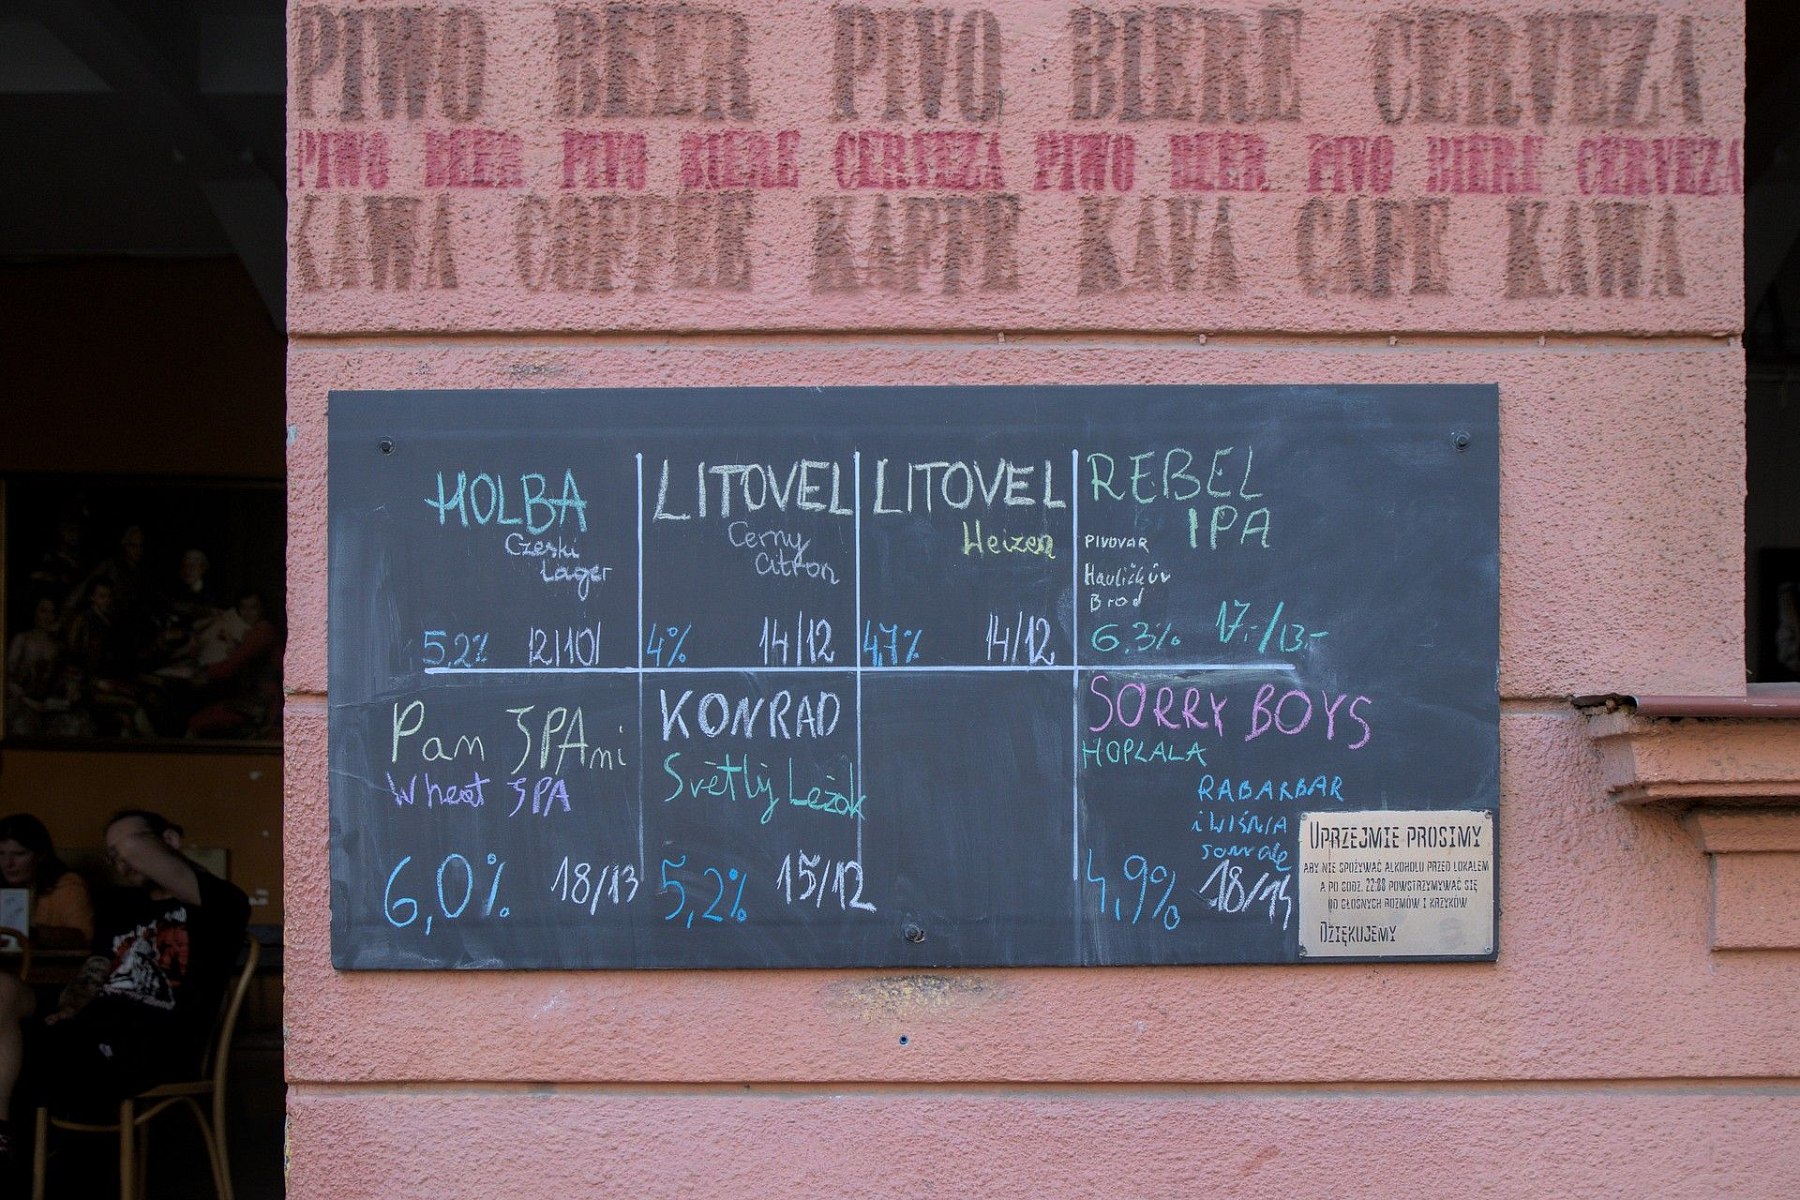 PIWO BEER PIVO BIERE CERVEZA
PIWO BEER PIVO BIERE CERVEZA PIWO BEER PIVO BIERE CERVEZA
KAWA COFFEE KAFFE KAVA CAFE KAWA
HOLBA
Czeski
Lager
5,2% 12/10/
LITOVEL
Cerny
Citron
4% 14/12
LITOVEL
Heizen
4,7% 14/12
REBEL
IPA
PIVOVAR
Havličkův
Brod
6.3% 17,-/13,-
Pam JPAmi
Wheat JPA
6,0% 18/13
KONRAD
Světlý Ležok
5,2% 15/12
SORRY BOYS
HOPLALA
RABARBAR
i WIŚNIA
4,9% 18/14
UPRZEJMIE PROSIMY
ABY NIE SPOŻYWAĆ ALKOHOLU PRZED LOKALEM
A PO GODZ. 22:00 POWSTRZYMYWAĆ SIĘ
OD GŁOŚNYCH ROZMÓW I KRZYKÓW
DZIĘKUJEMY